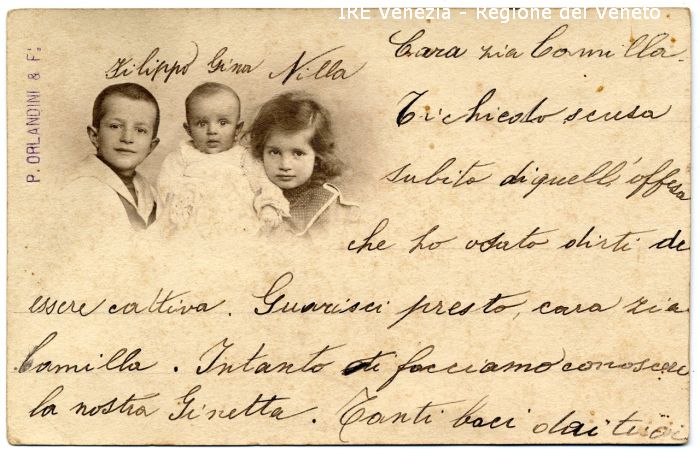 IRE Venezia - Regione del Veneto
P. ORLANDINI & F.
Filippo Gina Nilla
Cara zia Camilla.
Ti chiedo scusa
subito di quell'offesa
che ho osato dirti de
essere cattiva. Guarisci presto, cara zia
Camilla. Intanto ti facciamo conoscere
la nostra Ginetta. Tanti baci dai tuoi